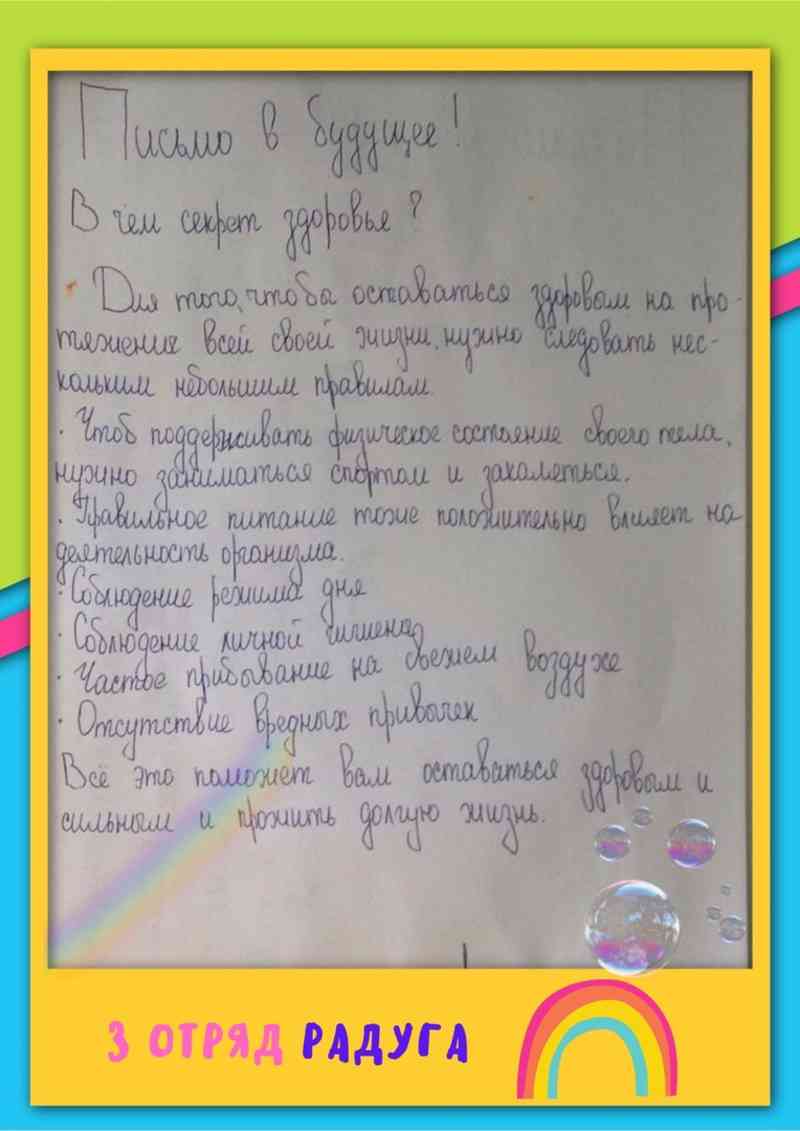 Письмо в будущее!
В чём секрет здоровья?
Для того, чтобы оставаться здоровым на про-
тяжении всей своей жизни, нужно следовать нес-
кольким небольшим правилам.
· Чтоб поддерживать физическое состояние своего тела,
нужно заниматься спортом и закаляться.
· Правильное питание тоже положительно влияет на
деятельность организма.
· Соблюдение режима дня
· Соблюдение личной гигиены
· Частое прибывание на свежем воздухе
· Отсутствие вредных привычек
Всё это поможет вам оставаться здоровым и
сильным и прожить долгую жизнь.
3 ОТРЯД РАДУГА